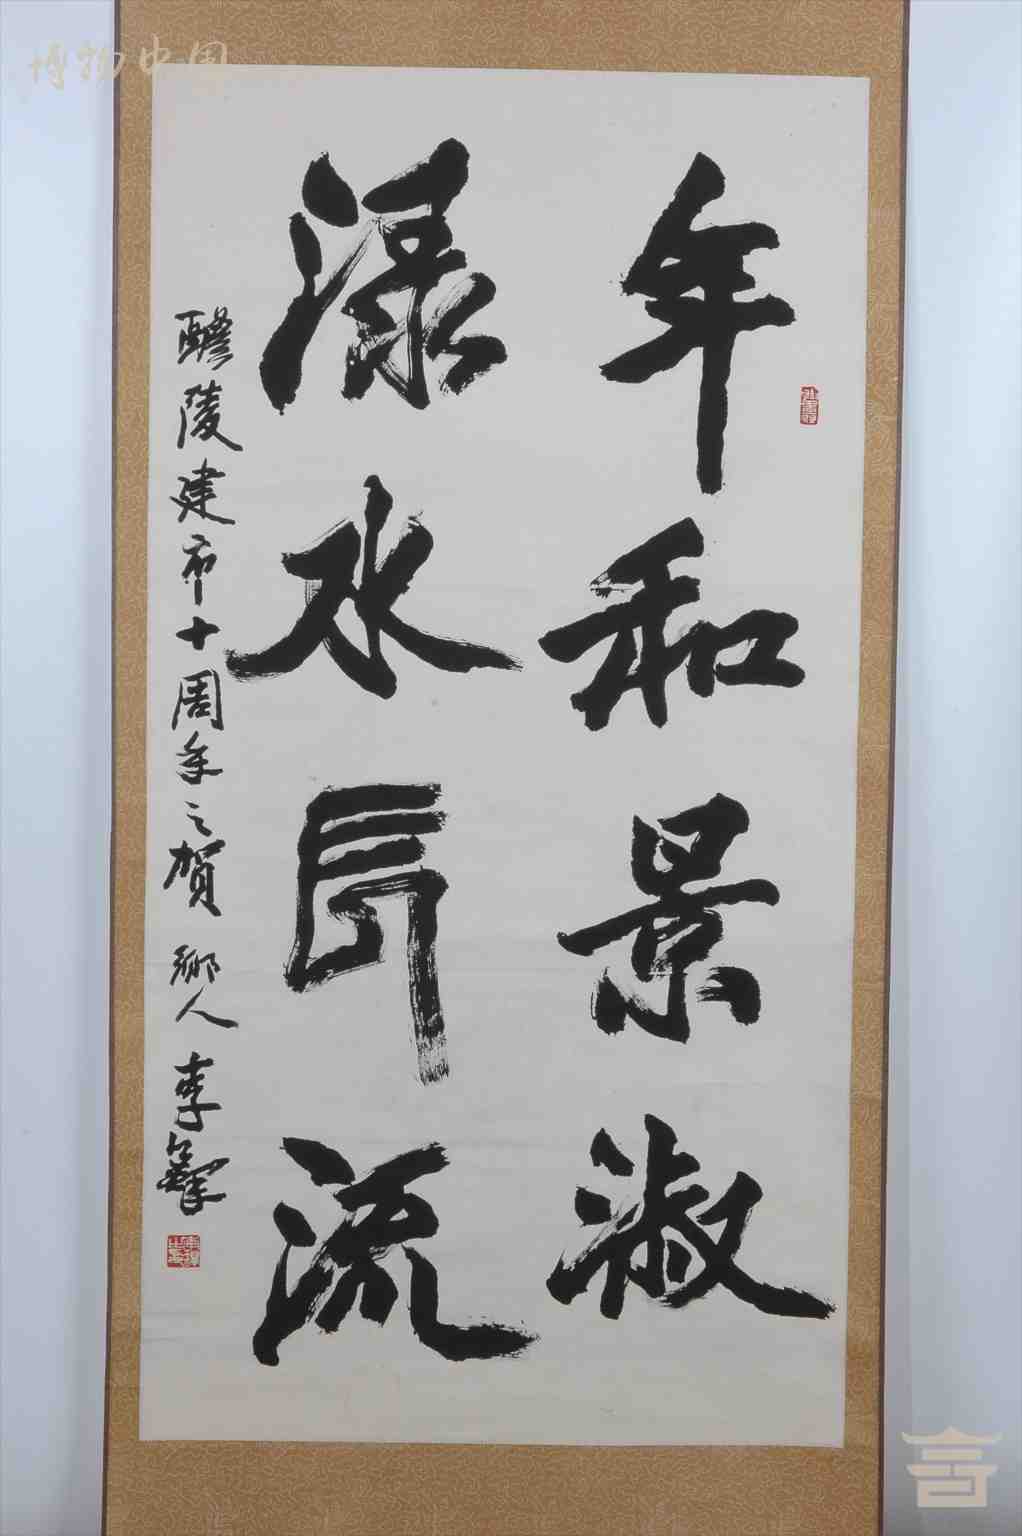 博物中国
年和景淑
渌水長流
醴陵建市十周年之賀 鄉人 李鐸